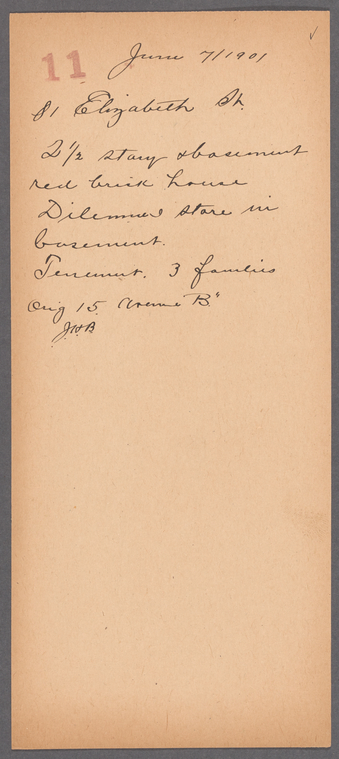 11
June 7/1901
81 Elizabeth St.
2 1/2 story & basement
red brick house
store in
basement.
Tenement. 3 families
Orig 15 Avenue B"
JHB